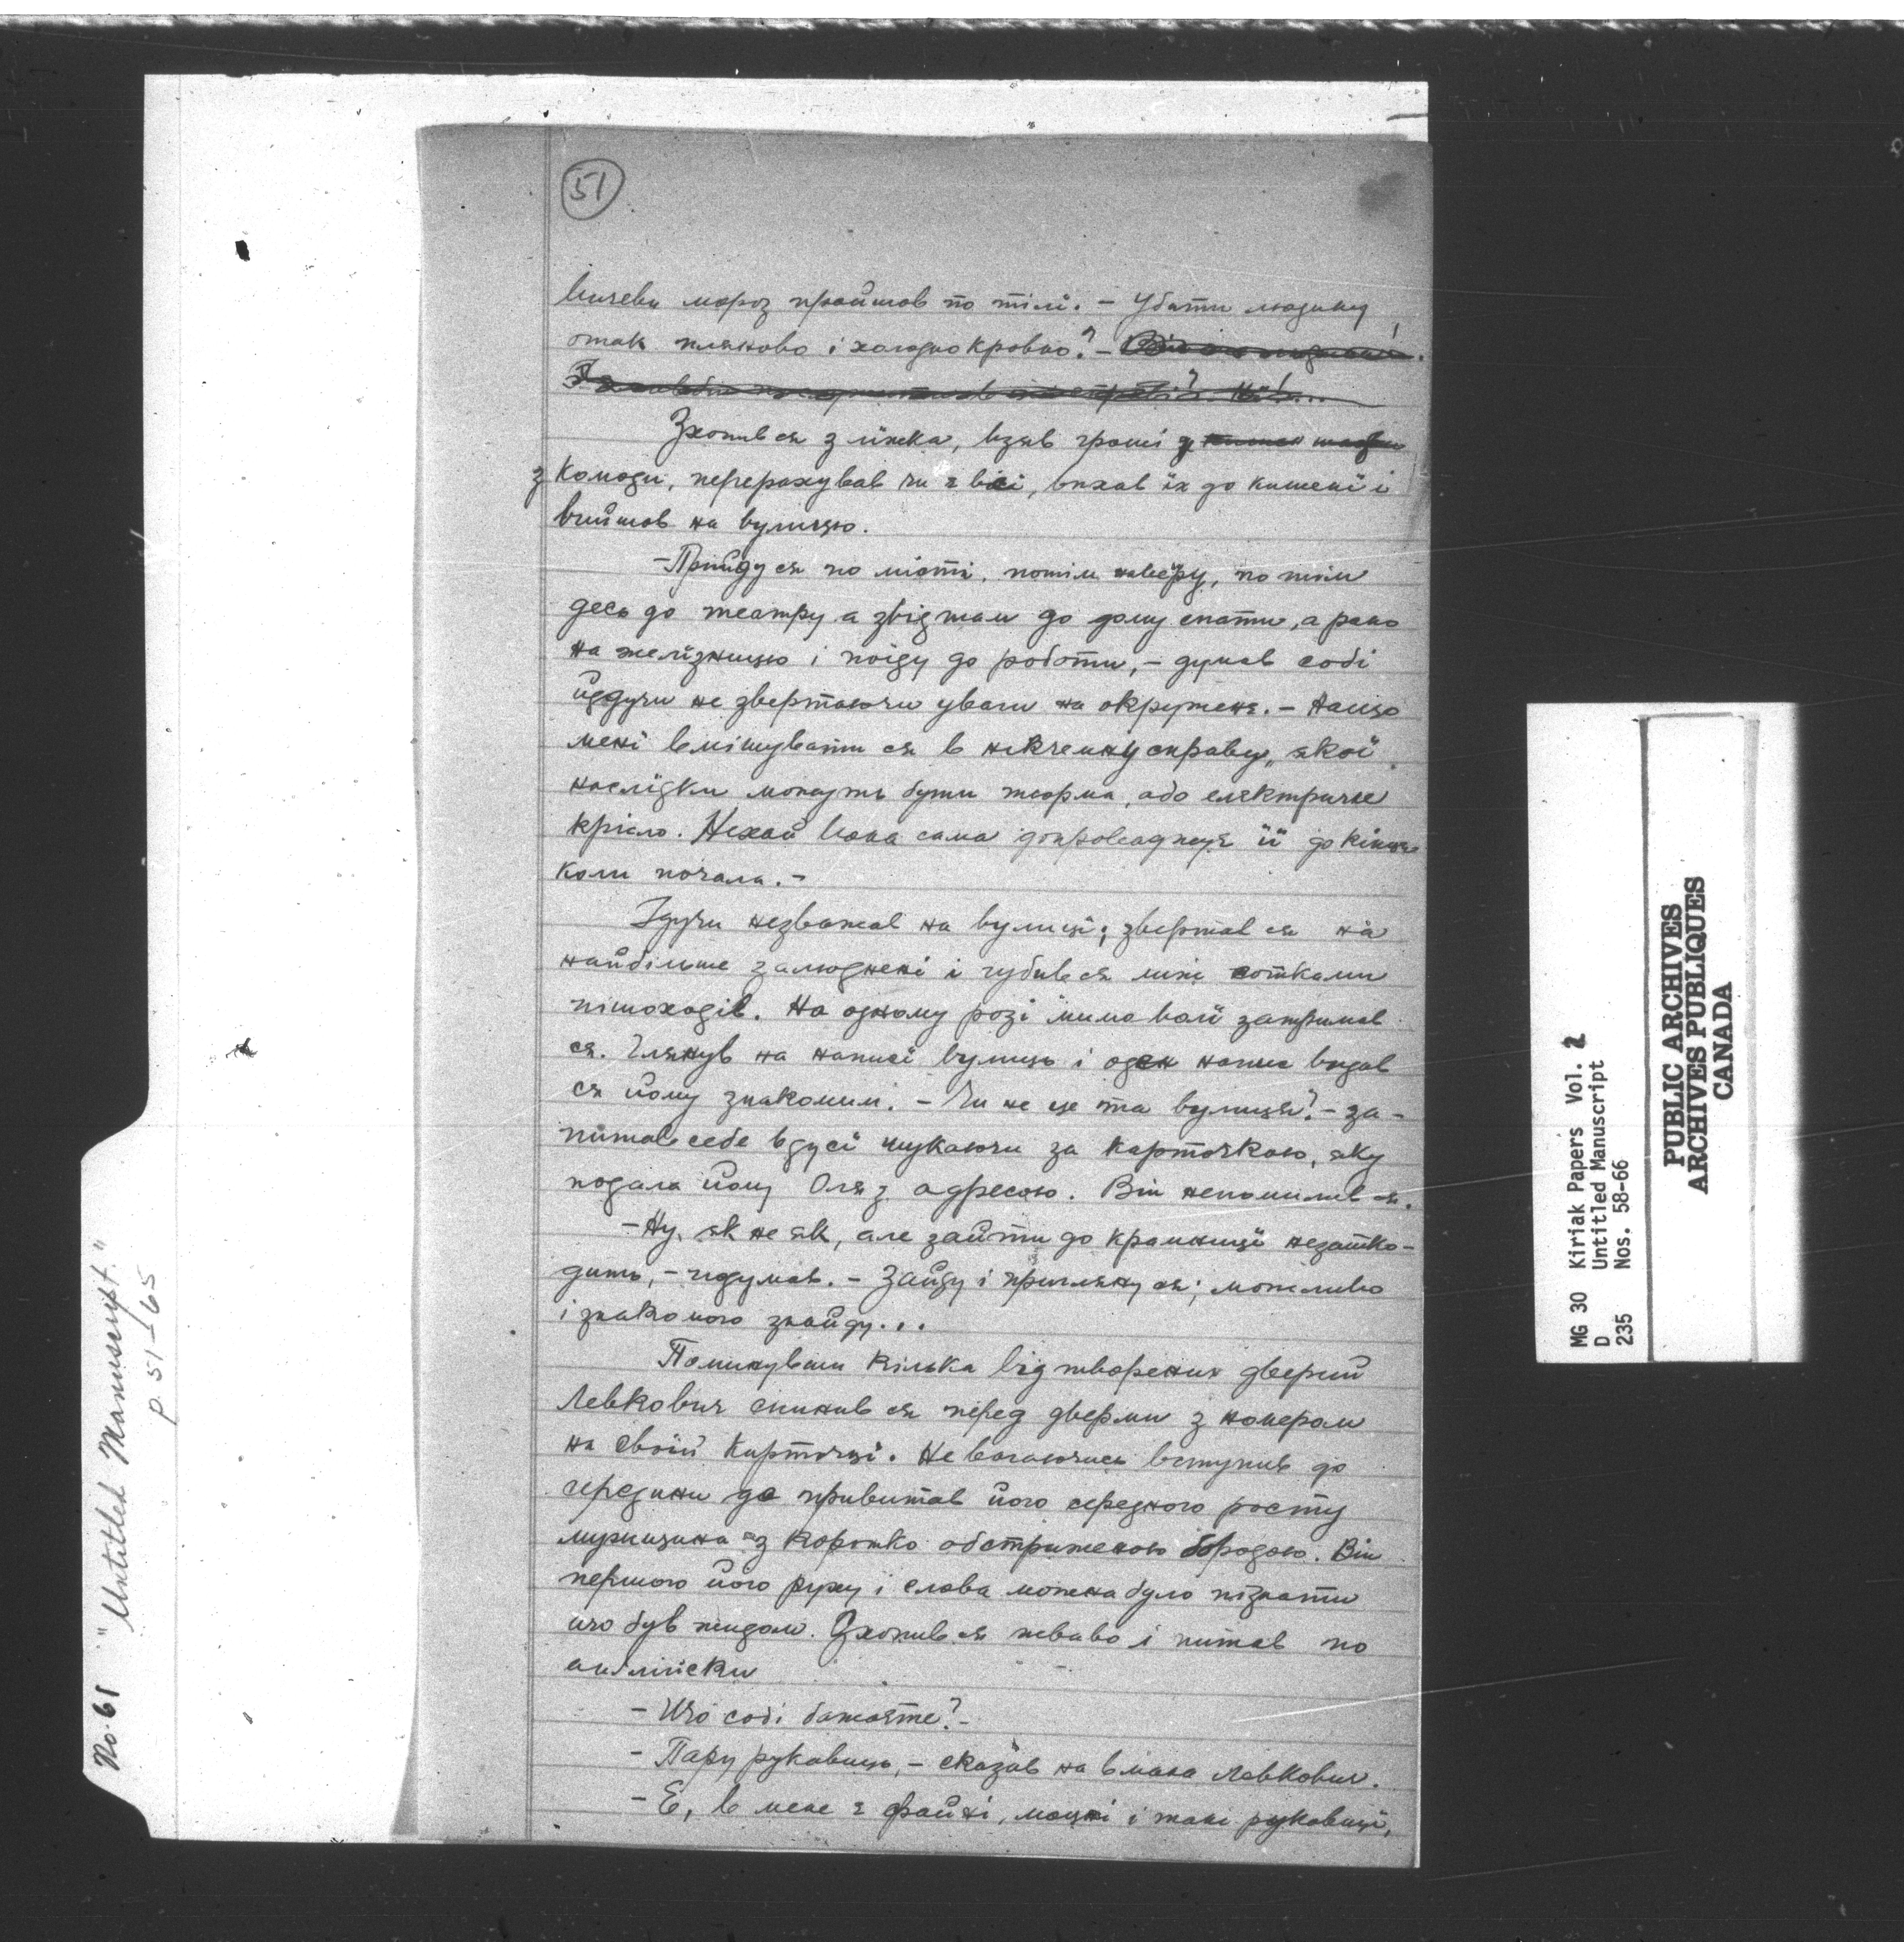 51
вичеви мороз пройшов по тілі. – Убити людину
отак пляново і холоднокровно? –
Зхопив ся з ліжка, взяв гроші з
з комоди, перерахував чи є всі, впхав їх до кишені і
вийшов на вулицю.
– Пройду ся по місті, потім по тім
десь до театру а звідтам до дому спати, а рано
на желїзницю і поїду до роботи, – думав собі
йдучи не звертаючи уваги на окруженя. – Нащо
мені вмішувати ся в нікчемну справу, якої
наслїдки можуть бути тюрма, або електричне
крісло. Нехай вона сама допроваджує її до кінця
коли почала. –
Ідучи незважав на вулиці; звертав ся на
найбільше залюднені і губив ся між сотками
пішоходів. На одному розі мимоволї затримав
ся. Глянув на написі вулиць і оден напис видав
ся йому знакомим. – Чи не це та вулиця? – за-
питав себе в дусі шукаючи за карточкою, яку
подала йому Оля з адресою. Він непомилив ся.
– Ну, як не як, але зайти до крамницї незашко-
дить, – подумав. – Зайду і приглянуся; можливо
і знакомого знайду...
Поминувши кілька відтворених дверий
Левкович спинив ся перед дверми з номером
на своїй карточцї. Не вагаючись вступив до
середини де привитав його середного росту
мужщина з коротко обстриженою бородою. Від
першого його руху і слова можна було пізнати
що був жидом. Зхопив ся жваво і питав по
англїйски
– Що собі бажаєте? –
– Пару рукавиць, – сказав на вмана Левкович.
– Е, в мене є файні, моцні і тані рукавицї,
No. 61 "Untitled Manuscript."
p. 51–65
MG 30 Kiriak Papers Vol. 2
D Untitled Manuscript
235 Nos. 58-66
PUBLIC ARCHIVES
ARCHIVES PUBLIQUES
CANADA